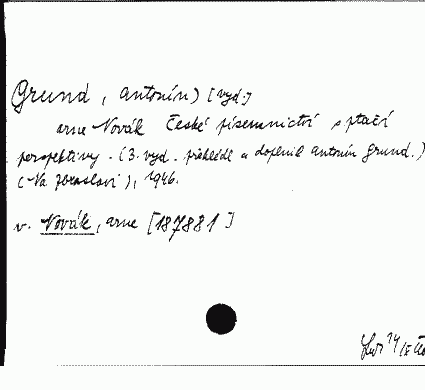 Grund, Antonín) [vyd.]
Arne Novák České písemnictví s ptačí
perspektivy. (3. vyd. přehlédl a doplnil Antonín Grund.)
(Na Zbraslavi), 1946.
v. Novák, Arne [187881]